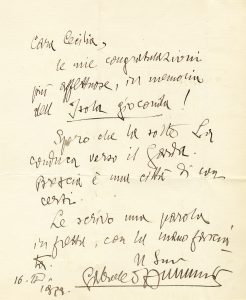 Cara Cecilia,
le mie congratulazioni
più affettuose, in memoria
dell' Isola gioconda!
Spero che la sorte La
conduca verso il Garda
Brescia è una città di con
certi.
Le scrivo una parola
in fretta, con la mano
Il Suo
Gabriele D'Annunzio
16.